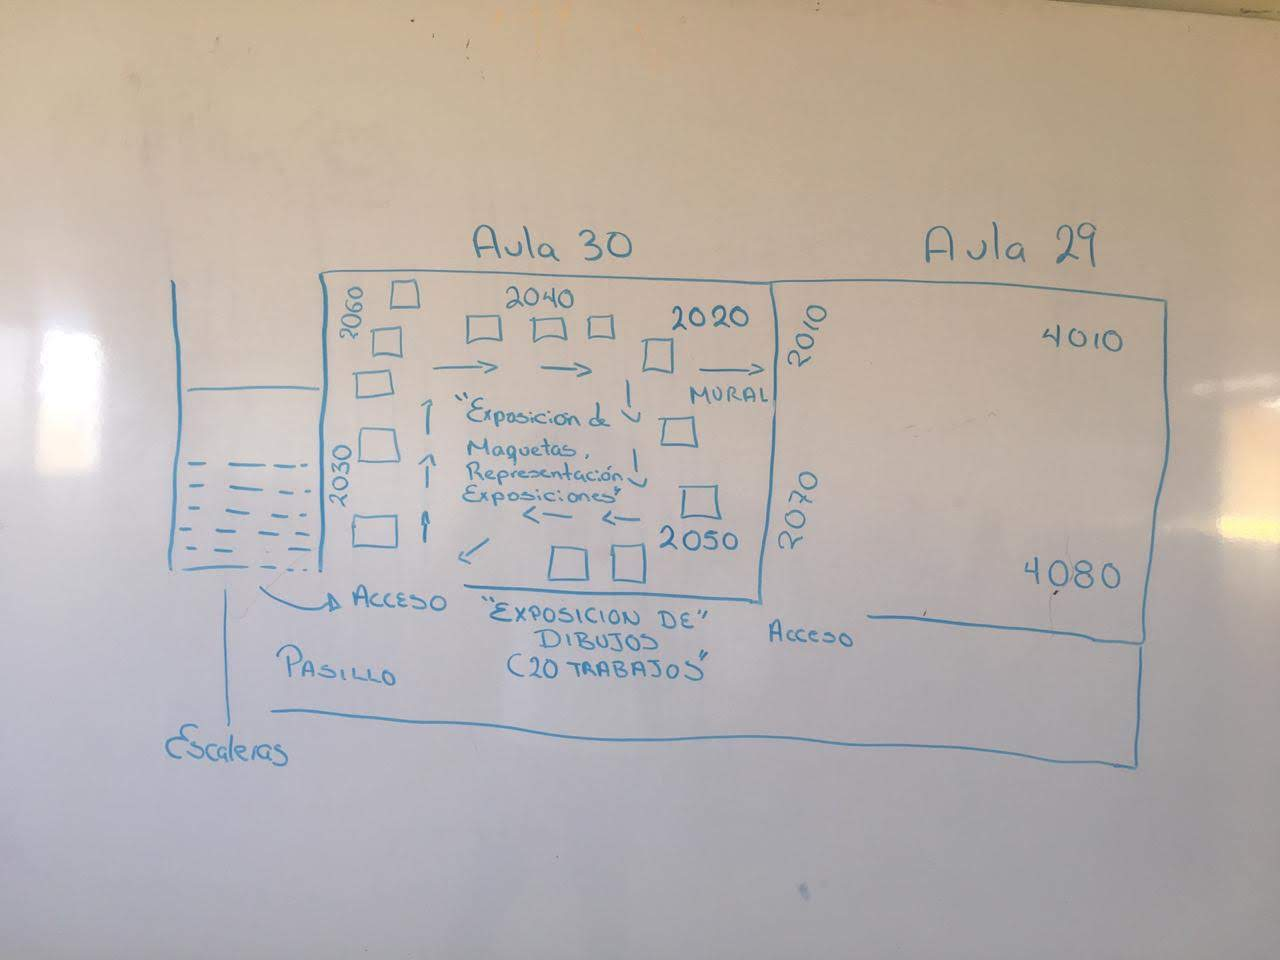 Aula 30
Aula 29
2060
2040
2020
2010
4010
MURAL
"Exposición de
Maquetas,
Representación
Exposiciones"
2030
2070
2050
4080
ACCESO
"EXPOSICION DE"
DIBUJOS
(20 TRABAJOS"
Acceso
PASILLO
Escaleras